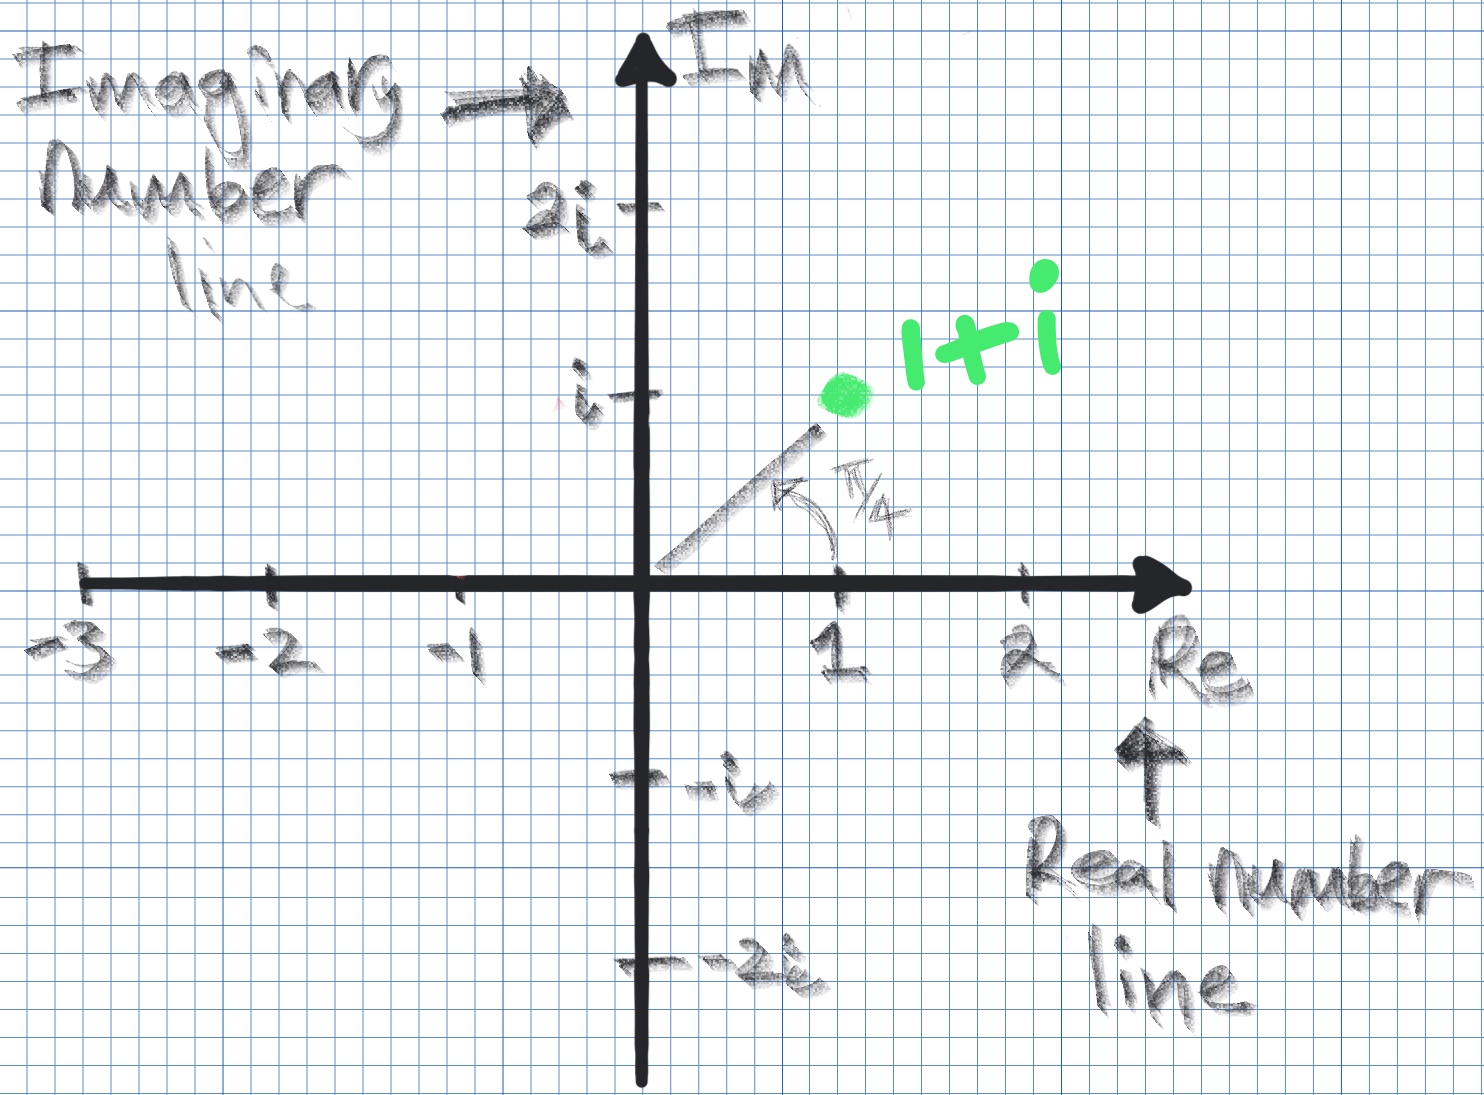 Im
Imaginary
number
line
2i
1+i
i
π/4
-3
-2
-1
1
2
Re
-i
Real number
line
-2i